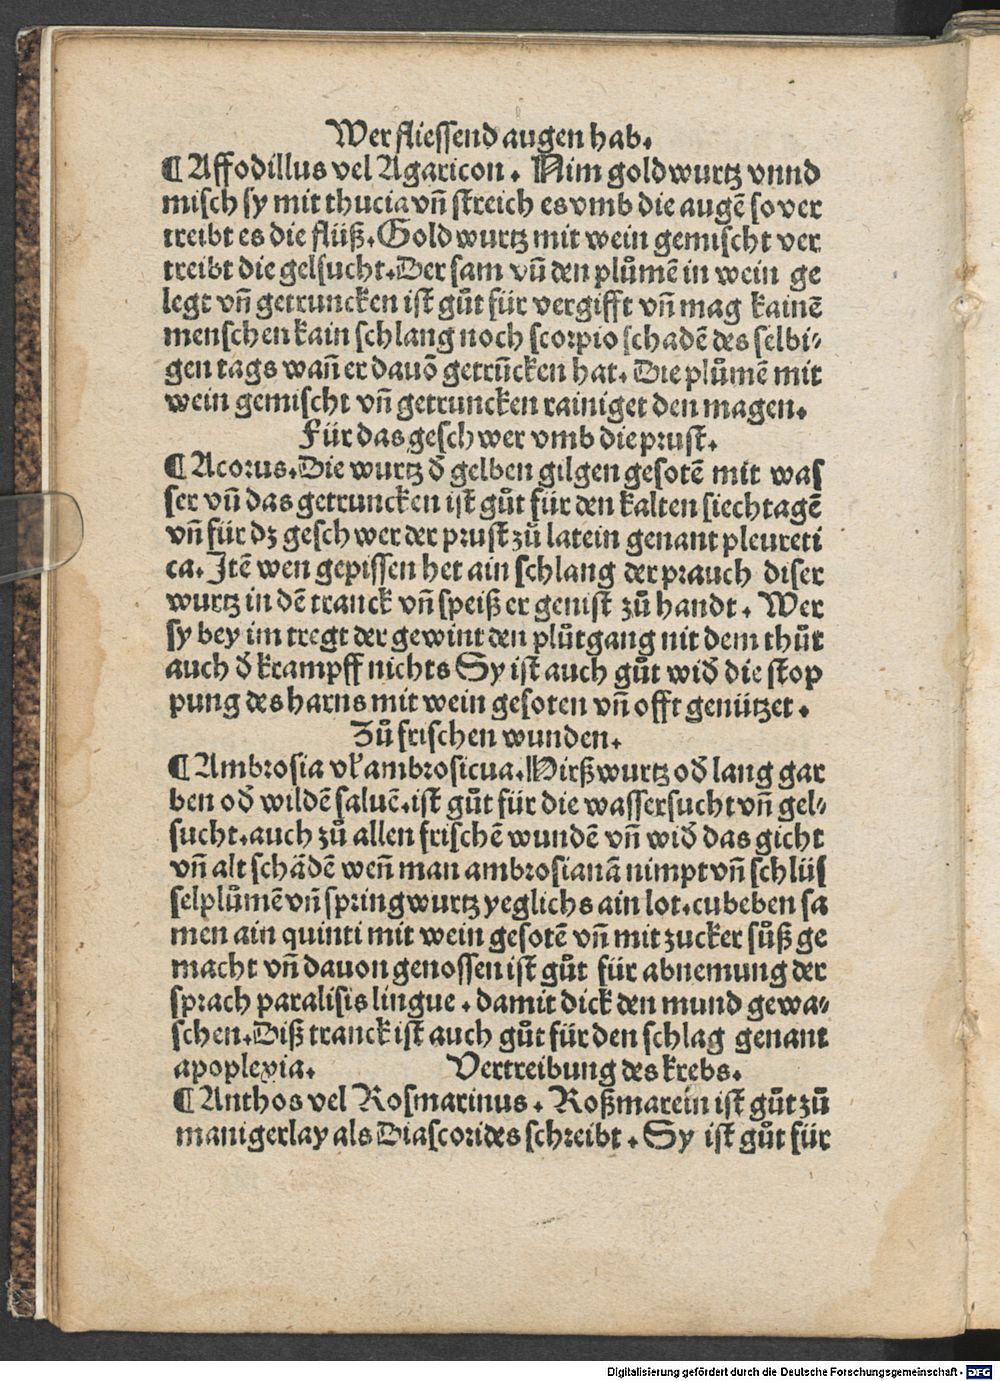 Wer fliessend augen hab.
¶ Affodillus vel Agaricon. Nim goldwurtz vnnd
misch sy mit thucia vñ streich es vmb die augē so ver
treibt es die flüß. Gold wurtz mit wein gemischt ver
treibt die gelsucht. Der sam vñ den plůmē in wein ge
legt vñ getruncken ist gůt für vergifft vñ mag kainē
menschen kain schlang noch scorpio schadē des selbi⸗
gen tags wañ er dauō getrūcken hat. Die plůmē mit
wein gemischt vñ getruncken rainiget den magen.
Für das geschwer vmb die prust.
¶ Acorus. Die wurtz đ gelben gilgen gesotē mit was
ser vñ das getruncken ist gůt für den kalten siechtagē
vñ für dz geschwer der prust zů latein genant pleureti
ca. Jtē wen gepissen het ain schlang der prauch diser
wurtz in dē tranck vñ speiß er genist zů handt. Wer
sy bey im tregt der gewint den plůtgang nit dem thůt
auch đ krampff nichts Sy ist auch gůt wiđ die stop
pung des harns mit wein gesoten vñ offt genützet.
Zů frischen wunden.
¶ Ambrosia vľ ambrosicua. Hirßwurtz ođ lang gar
ben ođ wildē saluē. ist gůt für die wassersucht vñ gel⸗
sucht. auch zů allen frischē wundē vñ wiđ das gicht
vñ alt schädē weñ man ambrosianā nimpt vñ schlüs
selplůmē vñ springwurtz yeglichs ain lot. cubeben sa
men ain quinti mit wein gesotē vñ mit zucker sůß ge
macht vñ dauon genossen ist gůt für abnemung der
sprach paralisis lingue. damit dick den mund gewa⸗
schen. Diß tranck ist auch gůt für den schlag genant
apoplexia. Vertreibung des krebs.
¶ Anthos vel Rosmarinus. Roßmarein ist gůt zů
manigerlay als Diascorides schreibt. Sy ist gůt für
Digitalisierung gefördert durch die Deutsche Forschungsgemeinschaft - DFG